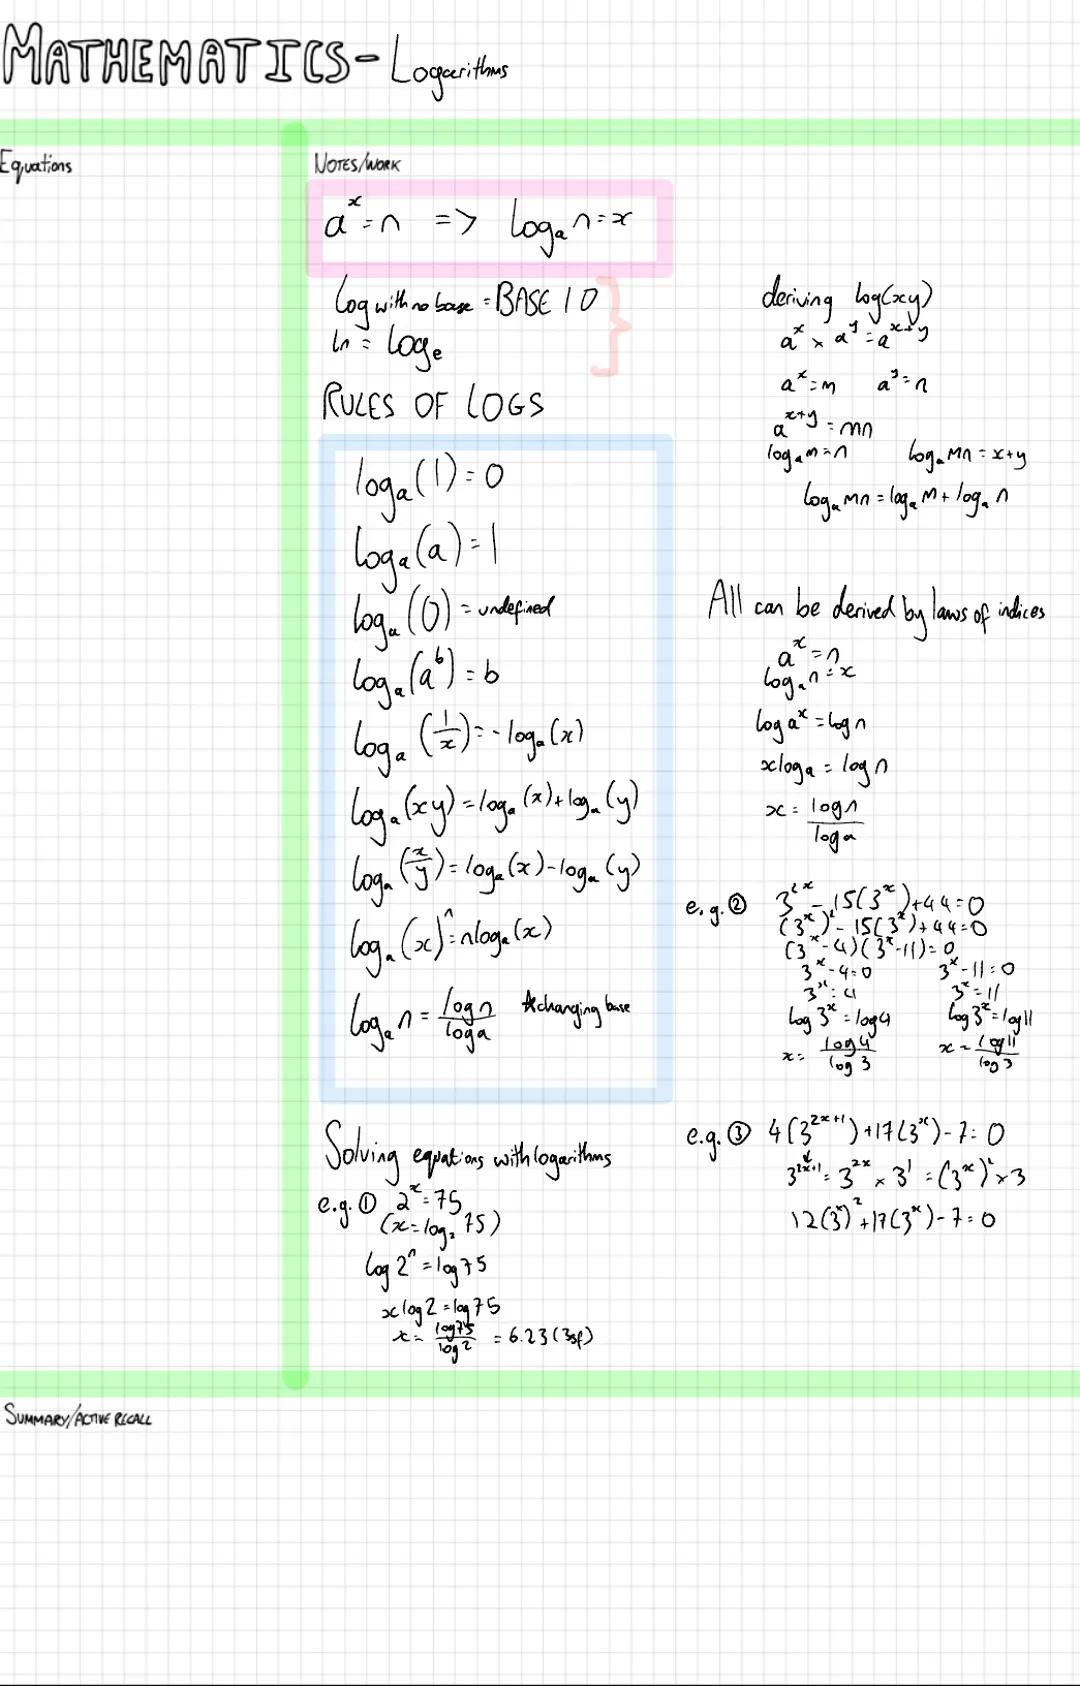 MATHEMATICS- Logarithms
Equations
NOTES/WORK
a^x = n => log_a n = x
Log with no base = BASE 10
ln = Log_e
RULES OF LOGS
log_a (1) = 0
log_a (a) = 1
log_a (0) = undefined
log_a (a^b) = b
log_a (1/x) = -log_a (x)
log_a (xy) = log_a (x) + log_a (y)
log_a (x/y) = log_a (x) - log_a (y)
log_a (x)^n = nlog_a (x)
log_a n = log n / log a *changing base
Solving equations with logarithms
e.g. ① 2^x = 75
(x = log_2 75)
log 2^n = log 75
x log 2 = log 75
x = log 75 / log 2 = 6.23 (3sf)
deriving log(xy)
a^x × a^y = a^x+y
a^x = m a^y = n
a^x+y = mn
log_a m = n log_a mn = x+y
log_a mn = log_a m + log_a n
All can be derived by laws of indices
a^x = n
log_a n = x
log a^x = log n
x log a = log n
x = log n / log a
e.g. ② 3^2x - 15(3^x) + 44 = 0
(3^x)^2 - 15(3^x) + 44 = 0
(3^x - 4)(3^x - 11) = 0
3^x - 4 = 0 3^x - 11 = 0
3^x = 4 3^x = 11
log 3^x = log 4 log 3^x = log 11
x = log 4 / log 3 x = log 11 / log 3
e.g. ③ 4(3^2x+1) + 17(3^x) - 7 = 0
3^2x+1 = 3^2x × 3^1 = (3^x)^2 × 3
12(3^x)^2 + 17(3^x) - 7 = 0
SUMMARY/ACTIVE RECALL